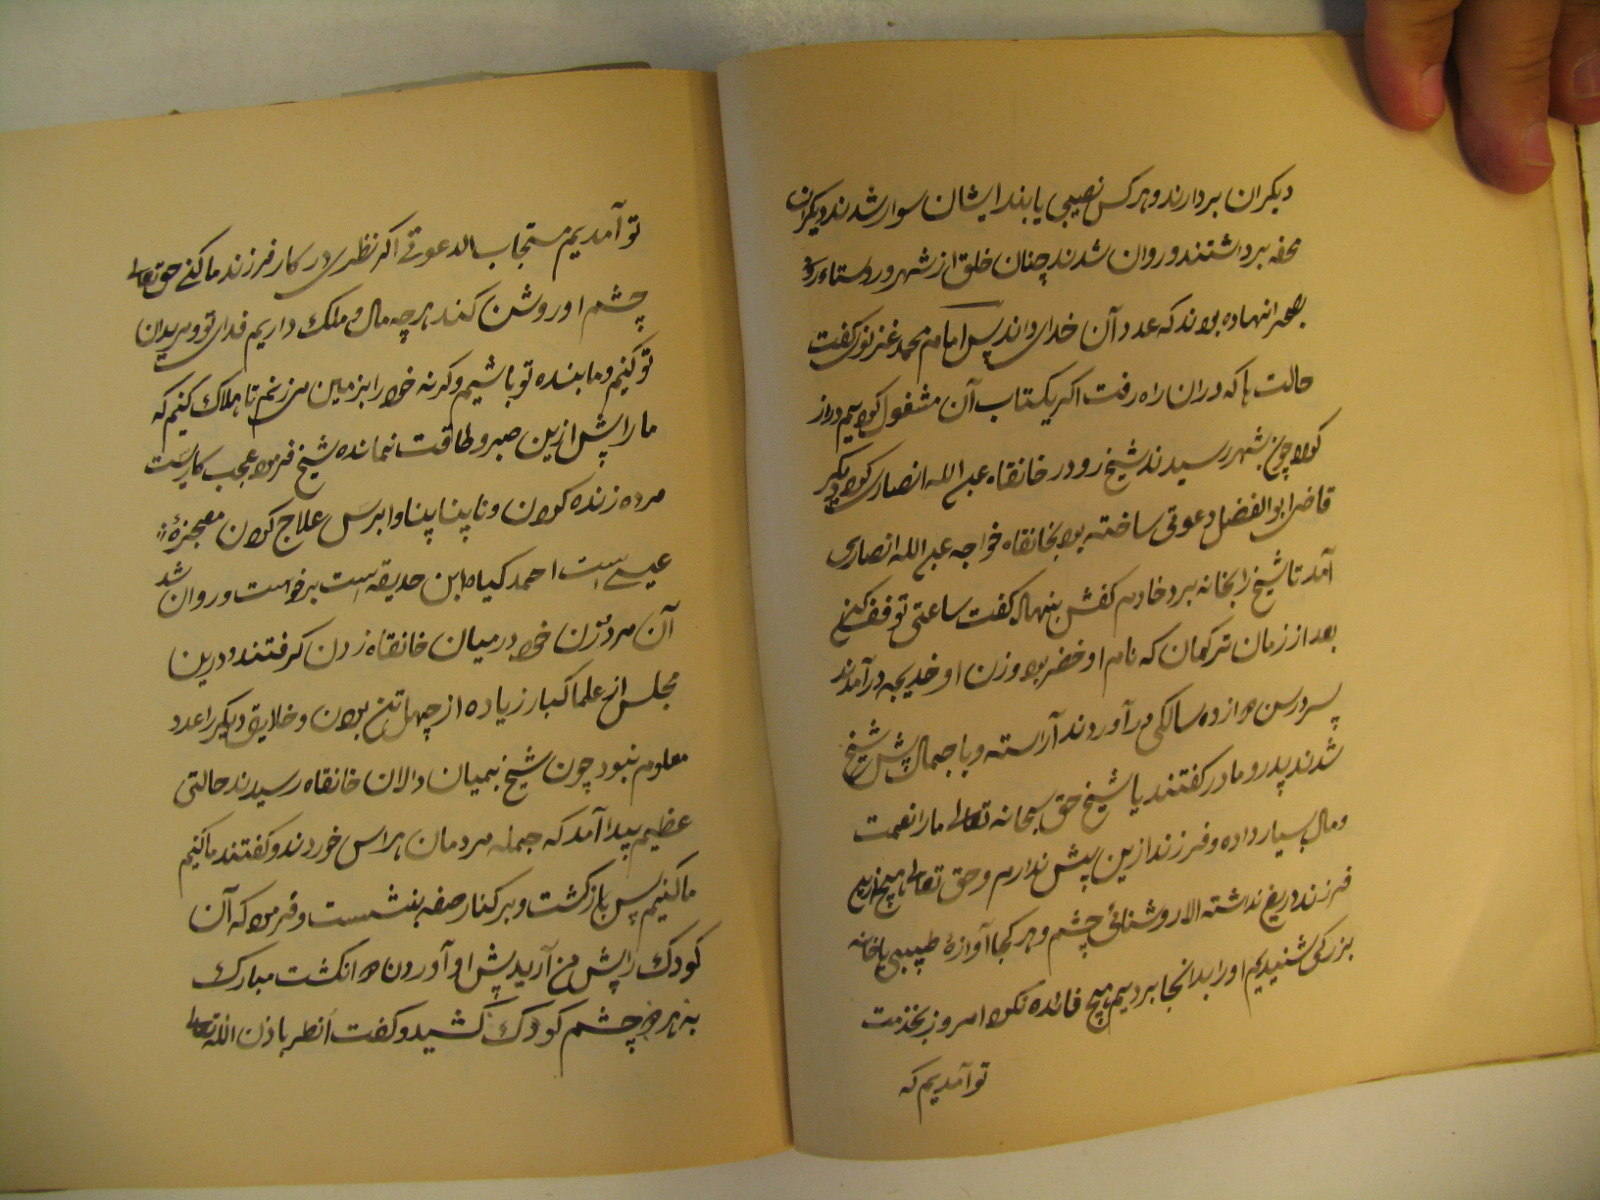 دیکران بردارند و هرکس نصیبی یابند ایشان سوار شدند دیکران
محفه برداشتند و روان شدند چنان خلق از شهر و روستاء رو
بصحرا نهاده بودند که عدد آن خدای داند پس امام محمد غزنوی کفت
حالت ها که در ان راه رفت اکر یکتاب آن مشغول کردیم دراز
کردد چون بشهر رسیدند شیخ رو در خانقاه عبد الله انصاری کرد دیکر
قاضی ابو الفضل دعوتی ساخته بود بخانقاه خواجه عبد الله انصاری
آمد تا شیخ را بخانه برد خادم کفش بنهاد کفت ساعتی توقف کنی
بعد از زمان ترکمان که نام او خضر بود و زن او خدیجه درآمدند
پسر در سن دوازده سالکی درآوردند آراسته و با جمال پیش شیخ
شدند پدر و مادر کفتند یا شیخ حق سبحانه تعالی ما را نعمت
و مال بسیار داده و فرزند ازین پیش ندارم و حق تعالی هیچ ازین
فرزند دریغ نداشته الا روشنائی چشم و هر کجا آوازهٔ طبیبی یا خانه
بزرکی شنیدیم او را بدانجا بردیم هیچ فائده نکرد امروز بخدمت
تو آمدیم که
تو آمدیم مستجاب الدعوتی اکر نظری در کار فرزند ما کنی حق تعالی
چشم او روشن کند هرچه مال و ملک داریم فدای تو و مریدان
تو کنیم و ما بنده تو باشیم و کرنه خود را بزمین می زنم تا هلاک کنیم که
ما را پیش ازین صبر و طاقت نمانده شیخ فرمود عجب کاریست
مرده زنده کردن و نابینا بینا و ابرس علاج کردن معجزهٔ
عیسی است احمد کیاه این حدیقه است برخواست و روان شد
آن مرد و زن خود در میان خانقاه زدن کرفتند و درین
مجلس از علما کبار زیاده از چهل تن بودن و خلایق دیکر را عدد
معلوم نبود چون شیخ بمیان دالان خانقاه رسیدند حالتی
عظیم پیدا آمد که جمله مردمان هراس خوردند و کفتند ما کنیم
ما کنیم پس باز کشت و بر کنار صفه بنشست و فرمود که آن
کودک را پیش من آرید پیش او آوردن دو انکشت مبارک
به هر دو چشم کودک کشید و کفت انظر باذن الله تعالی